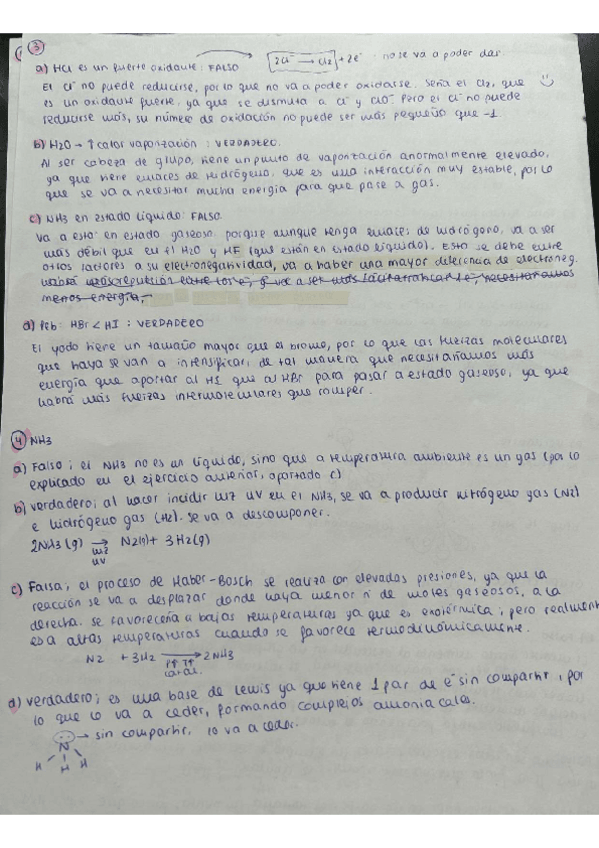 3
a) HCl es un fuerte oxidante: FALSO 2Cl⁻ → Cl2 + 2e⁻ no se va a poder dar
El Cl⁻ no puede reducirse, por lo que no va a poder oxidarse. Sería el Cl2, que
es un oxidante fuerte, ya que se dismuta a Cl⁻ y ClO⁻. Pero el Cl⁻ no puede
reducirse más, su número de oxidación no puede ser más pequeño que -1.
b) H2O → ↑ calor vaporización : VERDADERO.
Al ser cabeza de grupo, tiene un punto de vaporización anormalmente elevado,
ya que tiene enlaces de hidrógeno, que es una interacción muy estable, por lo
que se va a necesitar mucha energía para que pase a gas.
c) NH3 en estado líquido: FALSO.
Va a estar en estado gaseoso porque aunque tenga enlaces de hidrógeno, va a ser
más débil que en el H2O y HF (que están en estado líquido). Esto se debe entre
otros factores a su electronegatividad, va a haber una mayor diferencia de electroneg.
habrá repulsión entre los e⁻, y va a ser más fácil arrancar 1e⁻, necesitaríamos
menos energía.
d) Peb: HBr < HI : VERDADERO
El yodo tiene un tamaño mayor que el bromo, por lo que las fuerzas moleculares
que haya se van a intensificar, de tal manera que necesitaríamos más
energía que aportar al HI que al HBr para pasar a estado gaseoso, ya que
habrá más fuerzas intermoleculares que romper.
4 NH3
a) Falso; el NH3 no es un líquido, sino que a temperatura ambiente es un gas (por lo
explicado en el ejercicio anterior, apartado c)
b) verdadero; al hacer incidir luz UV en el NH3, se va a producir nitrógeno gas (N2)
e hidrógeno gas (H2). Se va a descomponer.
2NH3(g) → N2(g) + 3H2(g)
luz
UV
c) Falsa; el proceso de Haber-Bosch se realiza con elevadas presiones, ya que la
reacción se va a desplazar donde haya menor nº de moles gaseosos, a la
derecha. Se favorecería a bajas temperaturas ya que es exotérmica; pero realmente
es a altas temperaturas cuando se favorece termodinámicamente.
N2 + 3H2 → 2NH3
P↑ T↑
catal.
d) verdadero; es una base de Lewis ya que tiene 1 par de e⁻ sin compartir, por
lo que lo va a ceder, formando complejos amoniacales.
→ sin compartir, lo va a ceder.
N
H H H